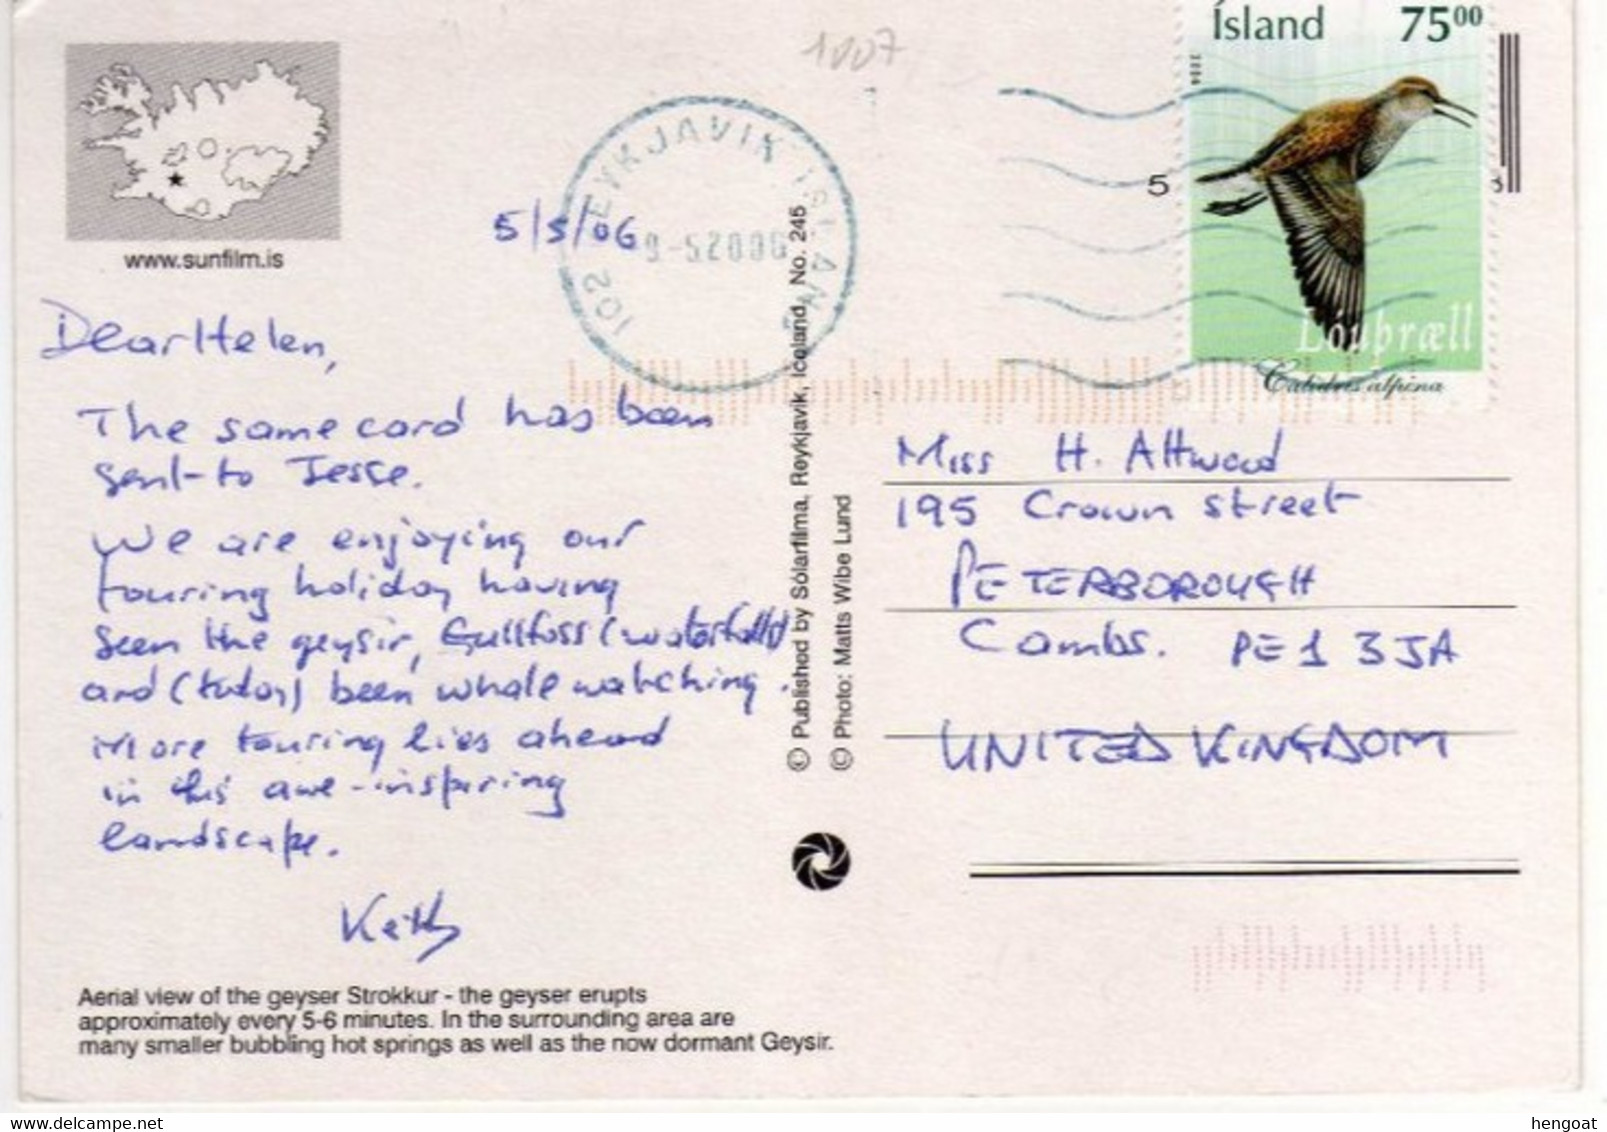 1007
Ísland 75⁰⁰
2004
5
Lóuþræll
Calidris alpina
102 REYKJAVIK ISLAND
9-52006
www.sunfilm.is
5/5/06
Dear Helen,
The same card has been
sent to Jesse.
We are enjoying our
touring holiday having
seen the geysir, Gullfoss (waterfalls)
and (today) been whale watching.
More touring lies ahead
in this awe-inspiring
landscape.
Aerial view of the geyser Strokkur - the geyser erupts
approximately every 5-6 minutes. In the surrounding area are
many smaller bubbling hot springs as well as the now dormant Geysir.
© Published by Sólarfilma, Reykjavik, Iceland, No. 245
© Photo: Matts Wibe Lund
Miss H. Attwood
195 Crown Street
PETERBOROUGH
Cambs. PE1 3JA
UNITED KINGDOM
hengoat